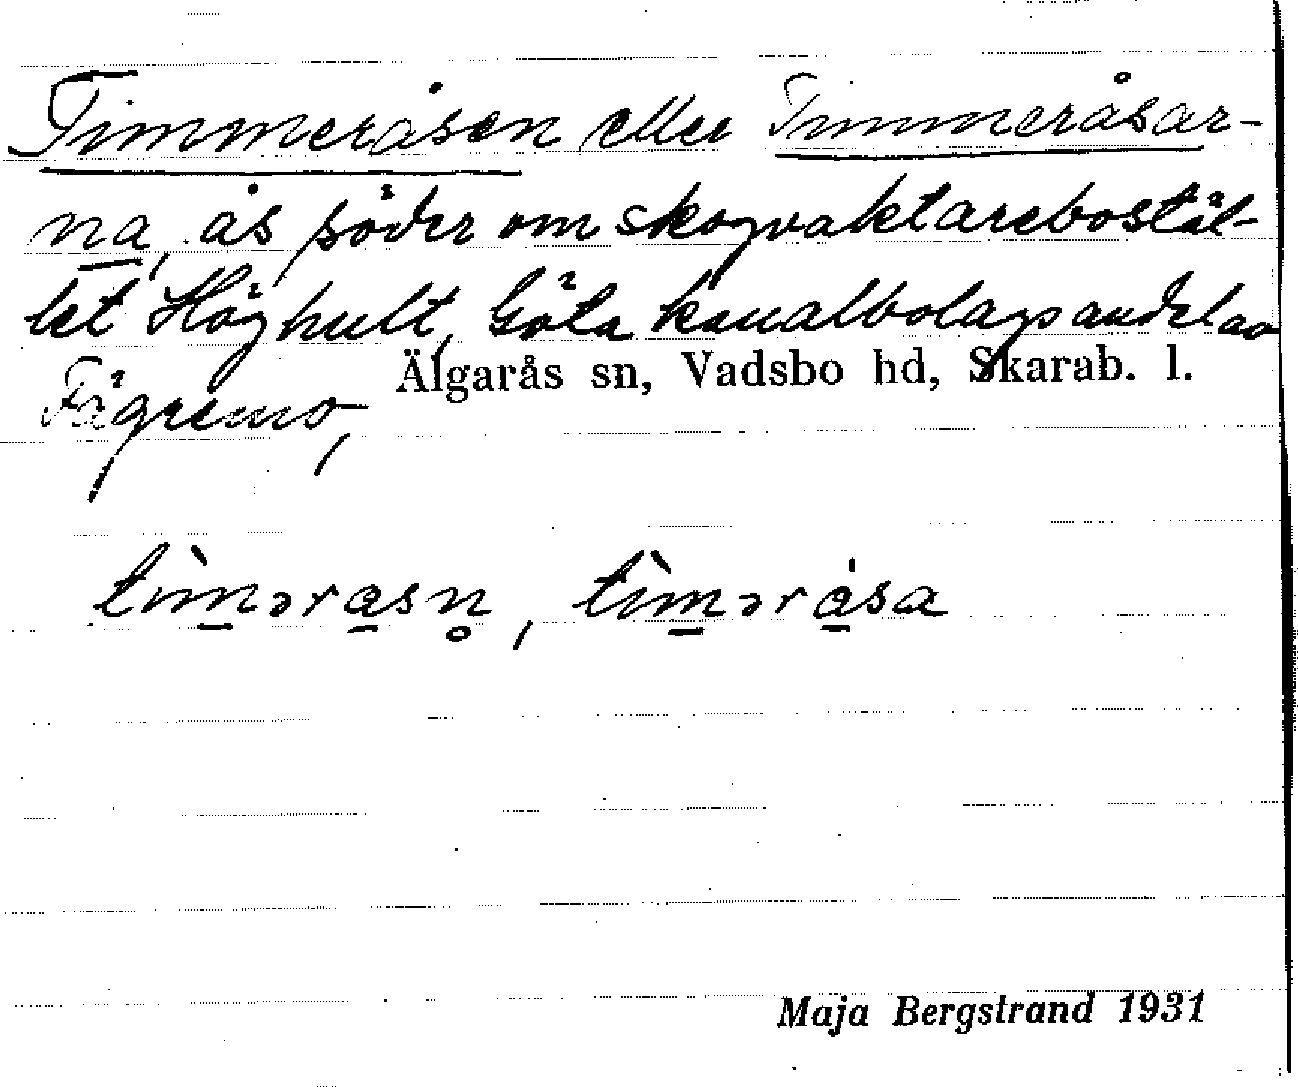 Timmeråsen eller Timmeråsar-
na, ås söder om skogvaktarebostäl-
let Höghult, Göta kanalbolagsandel av
Fägremo,
Älgarås sn, Vadsbo hd, Skarab. l.
tìm̲əra̲sn̥, tìm̲ərå̲sa
Maja Bergstrand 1931